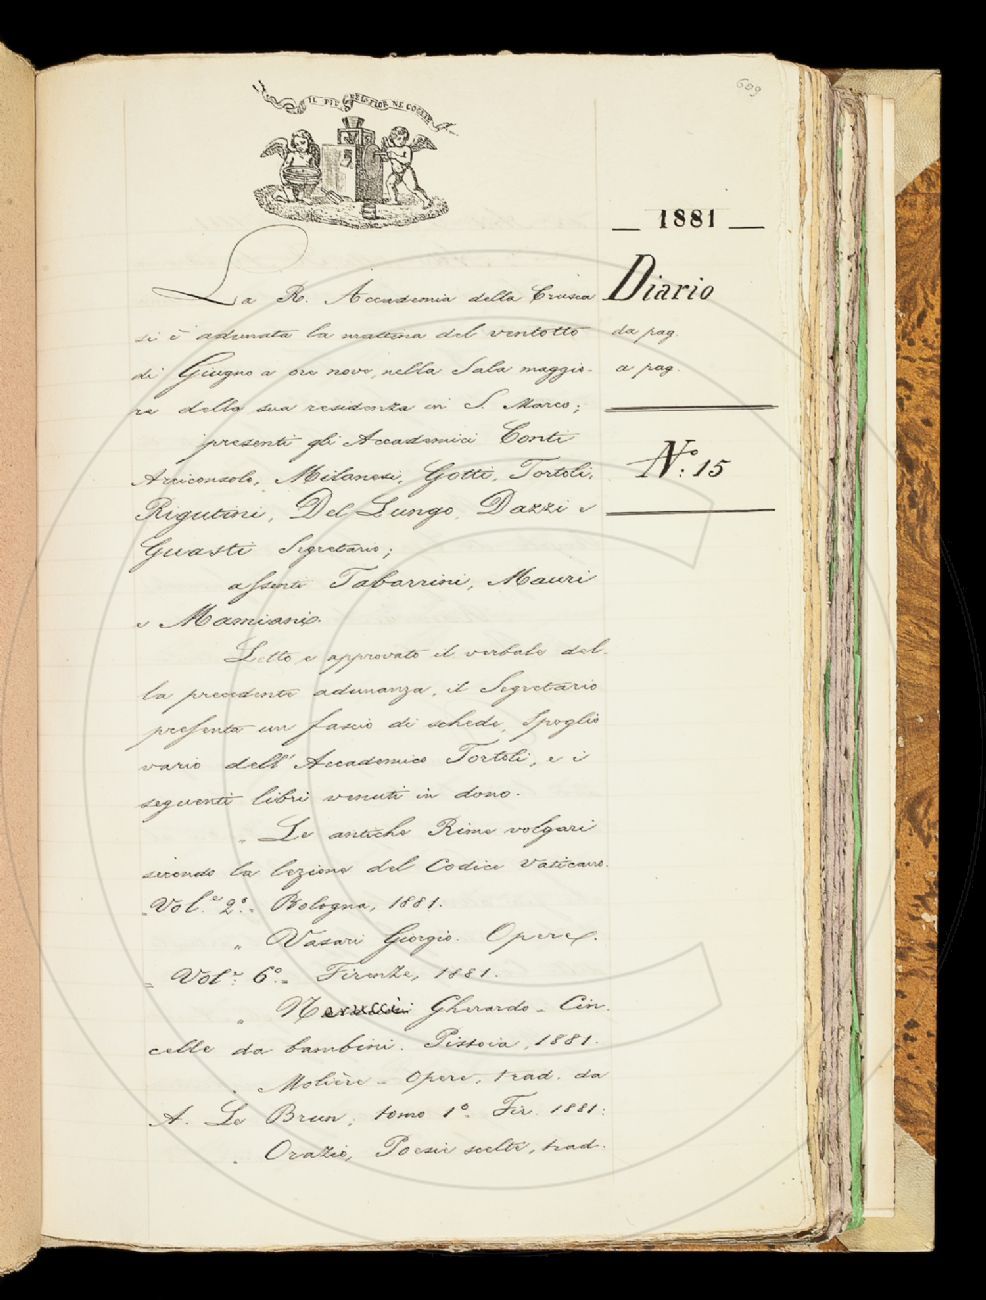 609
IL PIÙ BEL FIOR NE COGLIE
1881
Diario
da pag.
a pag.
N.º 15
La R. Accademia della Crusca
si è adunata la mattina del ventotto
di Giugno a ore nove, nella Sala maggio-
re della sua residenza in S. Marco;
presenti gli Accademici Conti
Arciconsolo, Milanesi, Gotti, Tortoli,
Rigutini, Del Lungo, Dazzi e
Guasti Segretario;
assenti Tabarrini, Mauri
e Mamiani.
Letto e approvato il verbale del-
la precedente adunanza, il Segretario
presenta un fascio di schede, Spoglio
vario dell'Accademico Tortoli, e i
seguenti libri venuti in dono.
„ Le antiche Rime volgari
secondo la lezione del Codice Vaticano.
Vol.e 2.º Bologna, 1881.
„ Vasari Giorgio. Opere.
Vol.e 6.º Firenze, 1881.
„ Nerucci Gherardo - Cin-
celle da bambini. Pistoia, 1881.
„ Molière - Opere, trad. da
A. Le Brun; tomo 1.º Fir. 1881.
„ Orazio, Poesie scelte, trad.